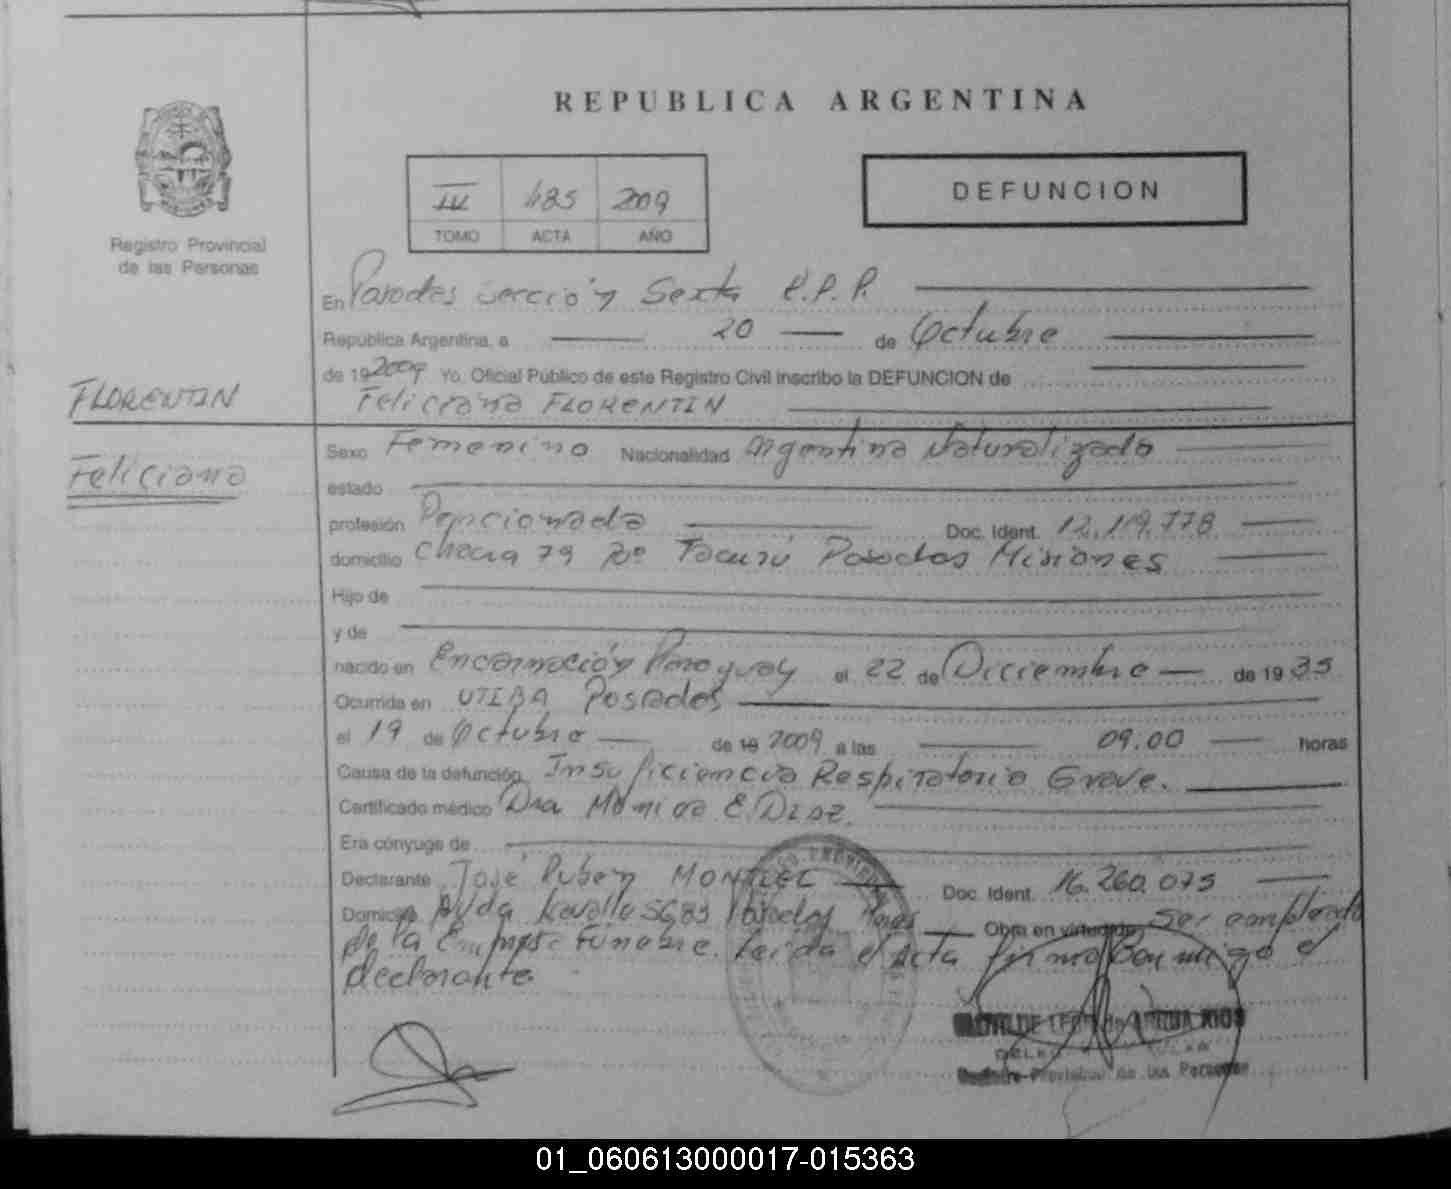 REPUBLICA ARGENTINA
IV 485 2009
TOMO ACTA AÑO
DEFUNCION
Registro Provincial
de las Personas
En Posadas Sección Sexta R.P.P.
República Argentina, a 20 de Octubre
de 19 2009 Yo. Oficial Público de este Registro Civil inscribo la DEFUNCION de
FLORENTIN
Feliciana FLORENTIN
Feliciana
Sexo Femenino Nacionalidad Argentina Naturalizada
estado
profesión Pencionada Doc. Ident. 12.119.778
domicilio Chacra 79 Bº Tacurú Posadas Misiones
Hijo de
y de
nacido en Encarnación Paraguay el 22 de Diciembre de 19 35
Ocurrida en UTIBA Posadas
el 19 de Octubre de 19 2009 a las 09.00 horas
Causa de la defunción Insuficiencia Respiratoria Grave.
Certificado médico Dra Monica E. Diaz.
Era cónyuge de
Declarante José Ruben MONTIEL Doc. Ident. 16.260.075
Domicilio Avda 5685 Posadas Mnes Obra en virtud de Ser empleado
de la Empresa Funebre. Leida el Acta firma conmigo el
declarante.
Registro Provincial de las Personas
01_060613000017-015363